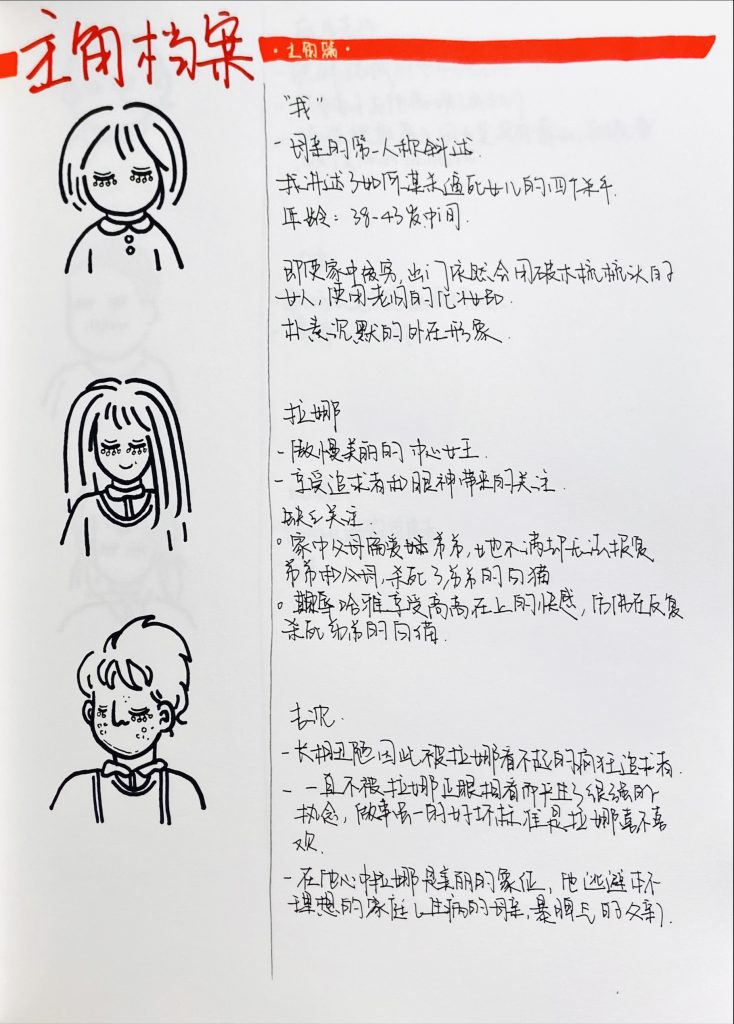 主角档案
·主角篇·
"我"
- 母亲的第一人称叙述.
我讲述了如何谋杀逼死女儿的四个杀手.
年龄：38-43岁中间.
即使家中极穷，出门依然会用破木梳梳头的
女人，使用老旧的化妆品.
朴素沉默的外在形象.
拉娜
- 傲慢美丽的中心女王.
- 享受追求者和眼神带来的关注.
缺乏关注.
家中父母偏爱弟弟，她不满却无法报复
弟弟和父母，杀死了弟弟的白猫
哈雅享受高高在上的快感，仿佛在反复
杀死弟弟的白猫.
- 长相丑陋因此被拉娜看不起的疯狂追求者.
- 一直不被拉娜正眼相看而产生了很强的
执念，做事唯一的好坏标准是拉娜喜不喜
欢.
- 在他心中拉娜是美丽的象征，他逃避不
理想的家庭，生病的母亲，暴脾气的父亲.